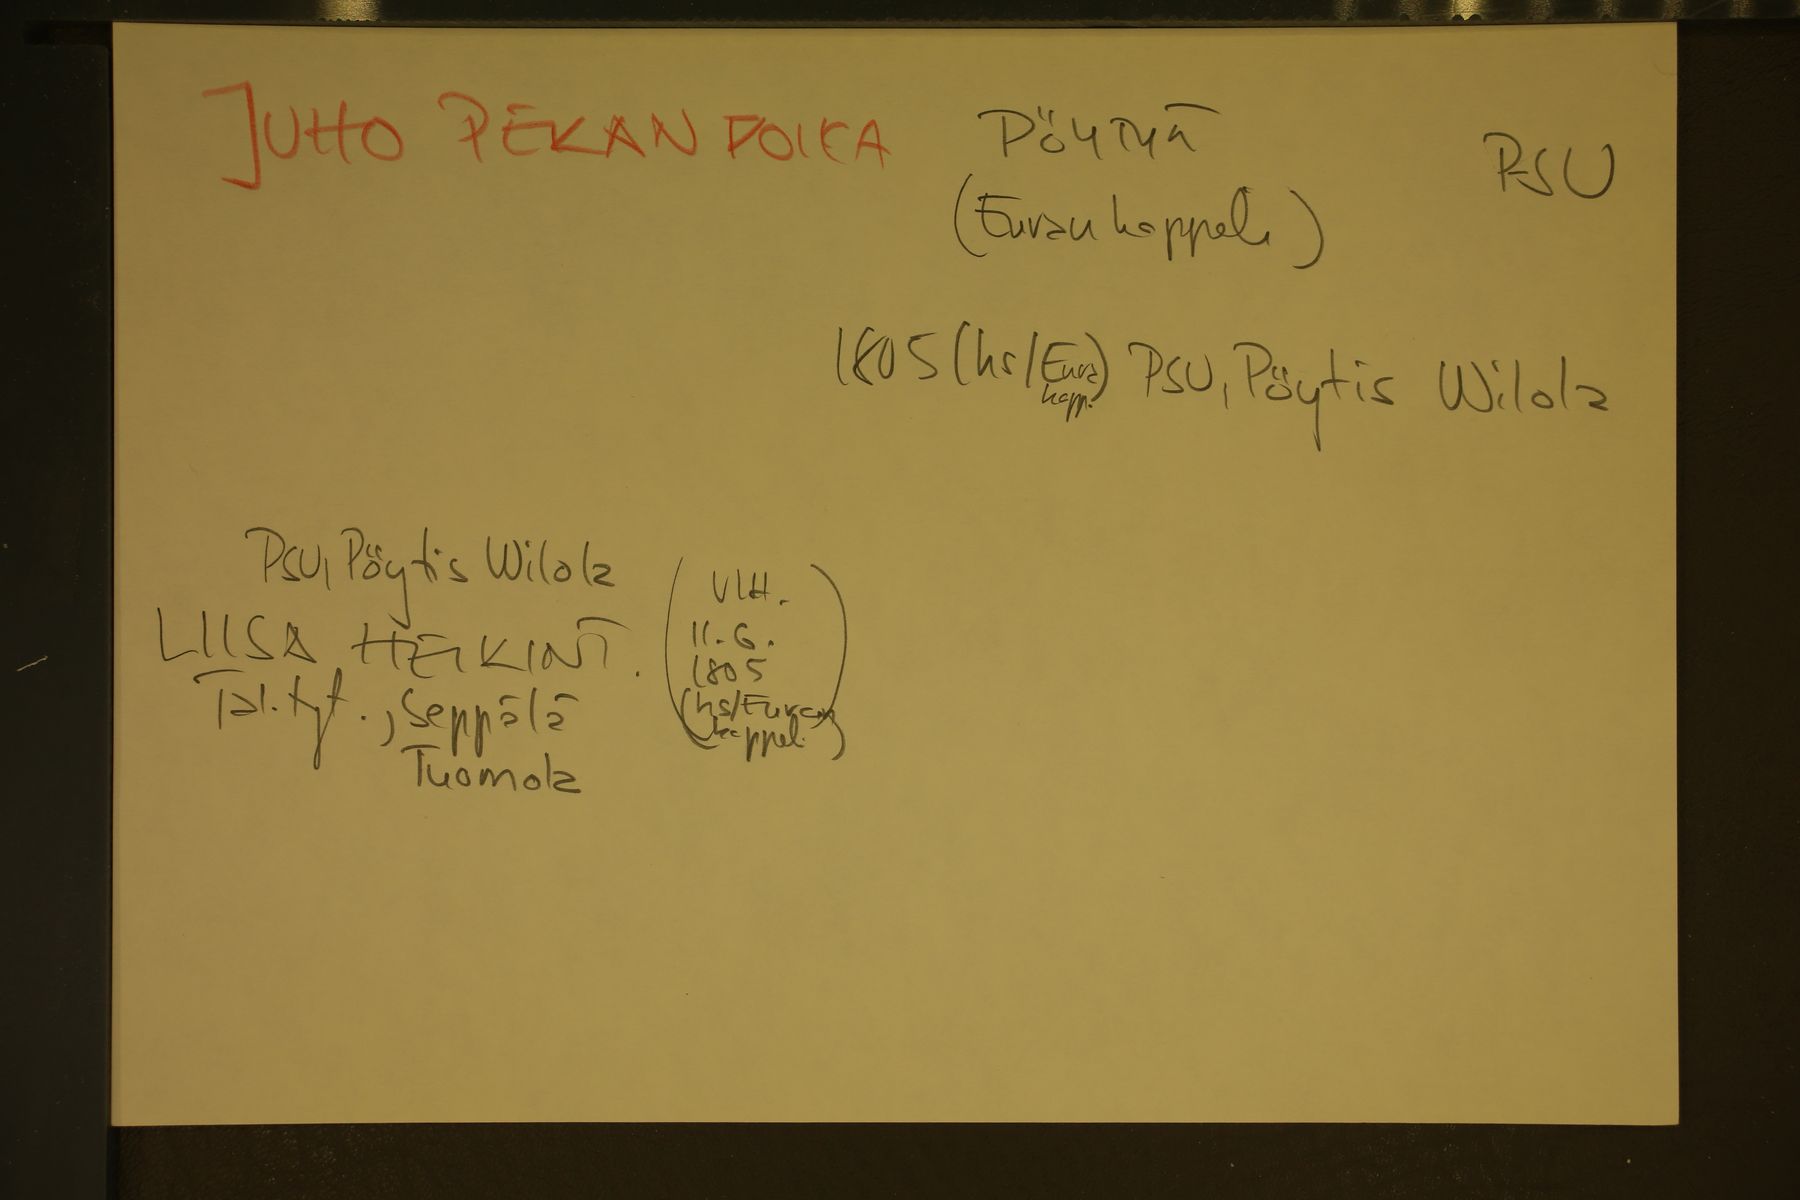 JUHO PEKANPOIKA PÖYTYÄ PSU
(Euran kappeli)
1805 (hs/Eura kapp.) PSU, Pöytis Wilola
PSU, Pöytis Wilola
LIISA HEIKINT.
Tal.tyt., Seppälä
Tuomola
(VIH.
11.6.
1805
(hs/Euran
kappeli)